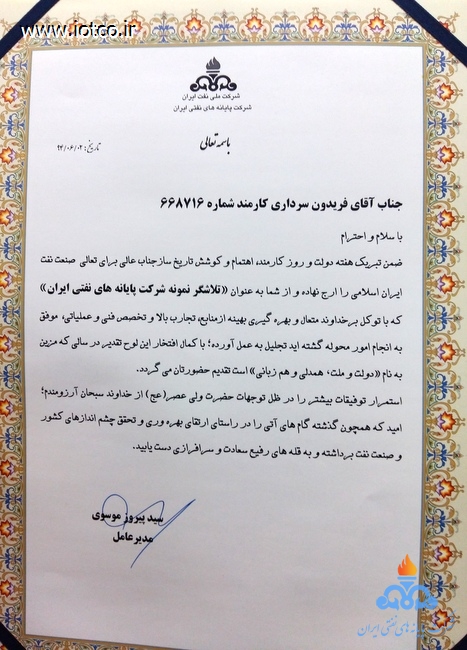 www.iotco.ir
شرکت ملی نفت ایران
شرکت پایانه های نفتی ایران
باسمه تعالی
تاریخ: ۹۴/۰۶/۰۲
جناب آقای فریدون سرداری کارمند شماره ۶۶۸۷۱۶
با سلام و احترام
ضمن تبریک هفته دولت و روز کارمند، اهتمام و کوشش تاریخ ساز جناب عالی برای تعالی صنعت نفت
ایران اسلامی را ارج نهاده و از شما به عنوان «تلاشگر نمونه شرکت پایانه های نفتی ایران»
که با توکل بر خداوند متعال و بهره گیری بهینه از منابع، تجارب بالا و تخصص فنی و عملیاتی، موفق
به انجام امور محوله گشته اید تجلیل به عمل آورده؛ با کمال افتخار این لوح تقدیر در سالی که مزین
به نام «دولت و ملت، همدلی و هم زبانی» است تقدیم حضورتان می گردد.
استمرار توفیقات بیشتر را در ظل توجهات حضرت ولی عصر(عج) از خداوند سبحان آرزومندم؛
امید که همچون گذشته گام های آتی را در راستای ارتقای بهره وری و تحقق چشم اندازهای کشور
و صنعت نفت برداشته و به قله های رفیع سعادت و سرافرازی دست یابید.
سید پیروز موسوی
مدیرعامل
پایانه های نفتی ایران